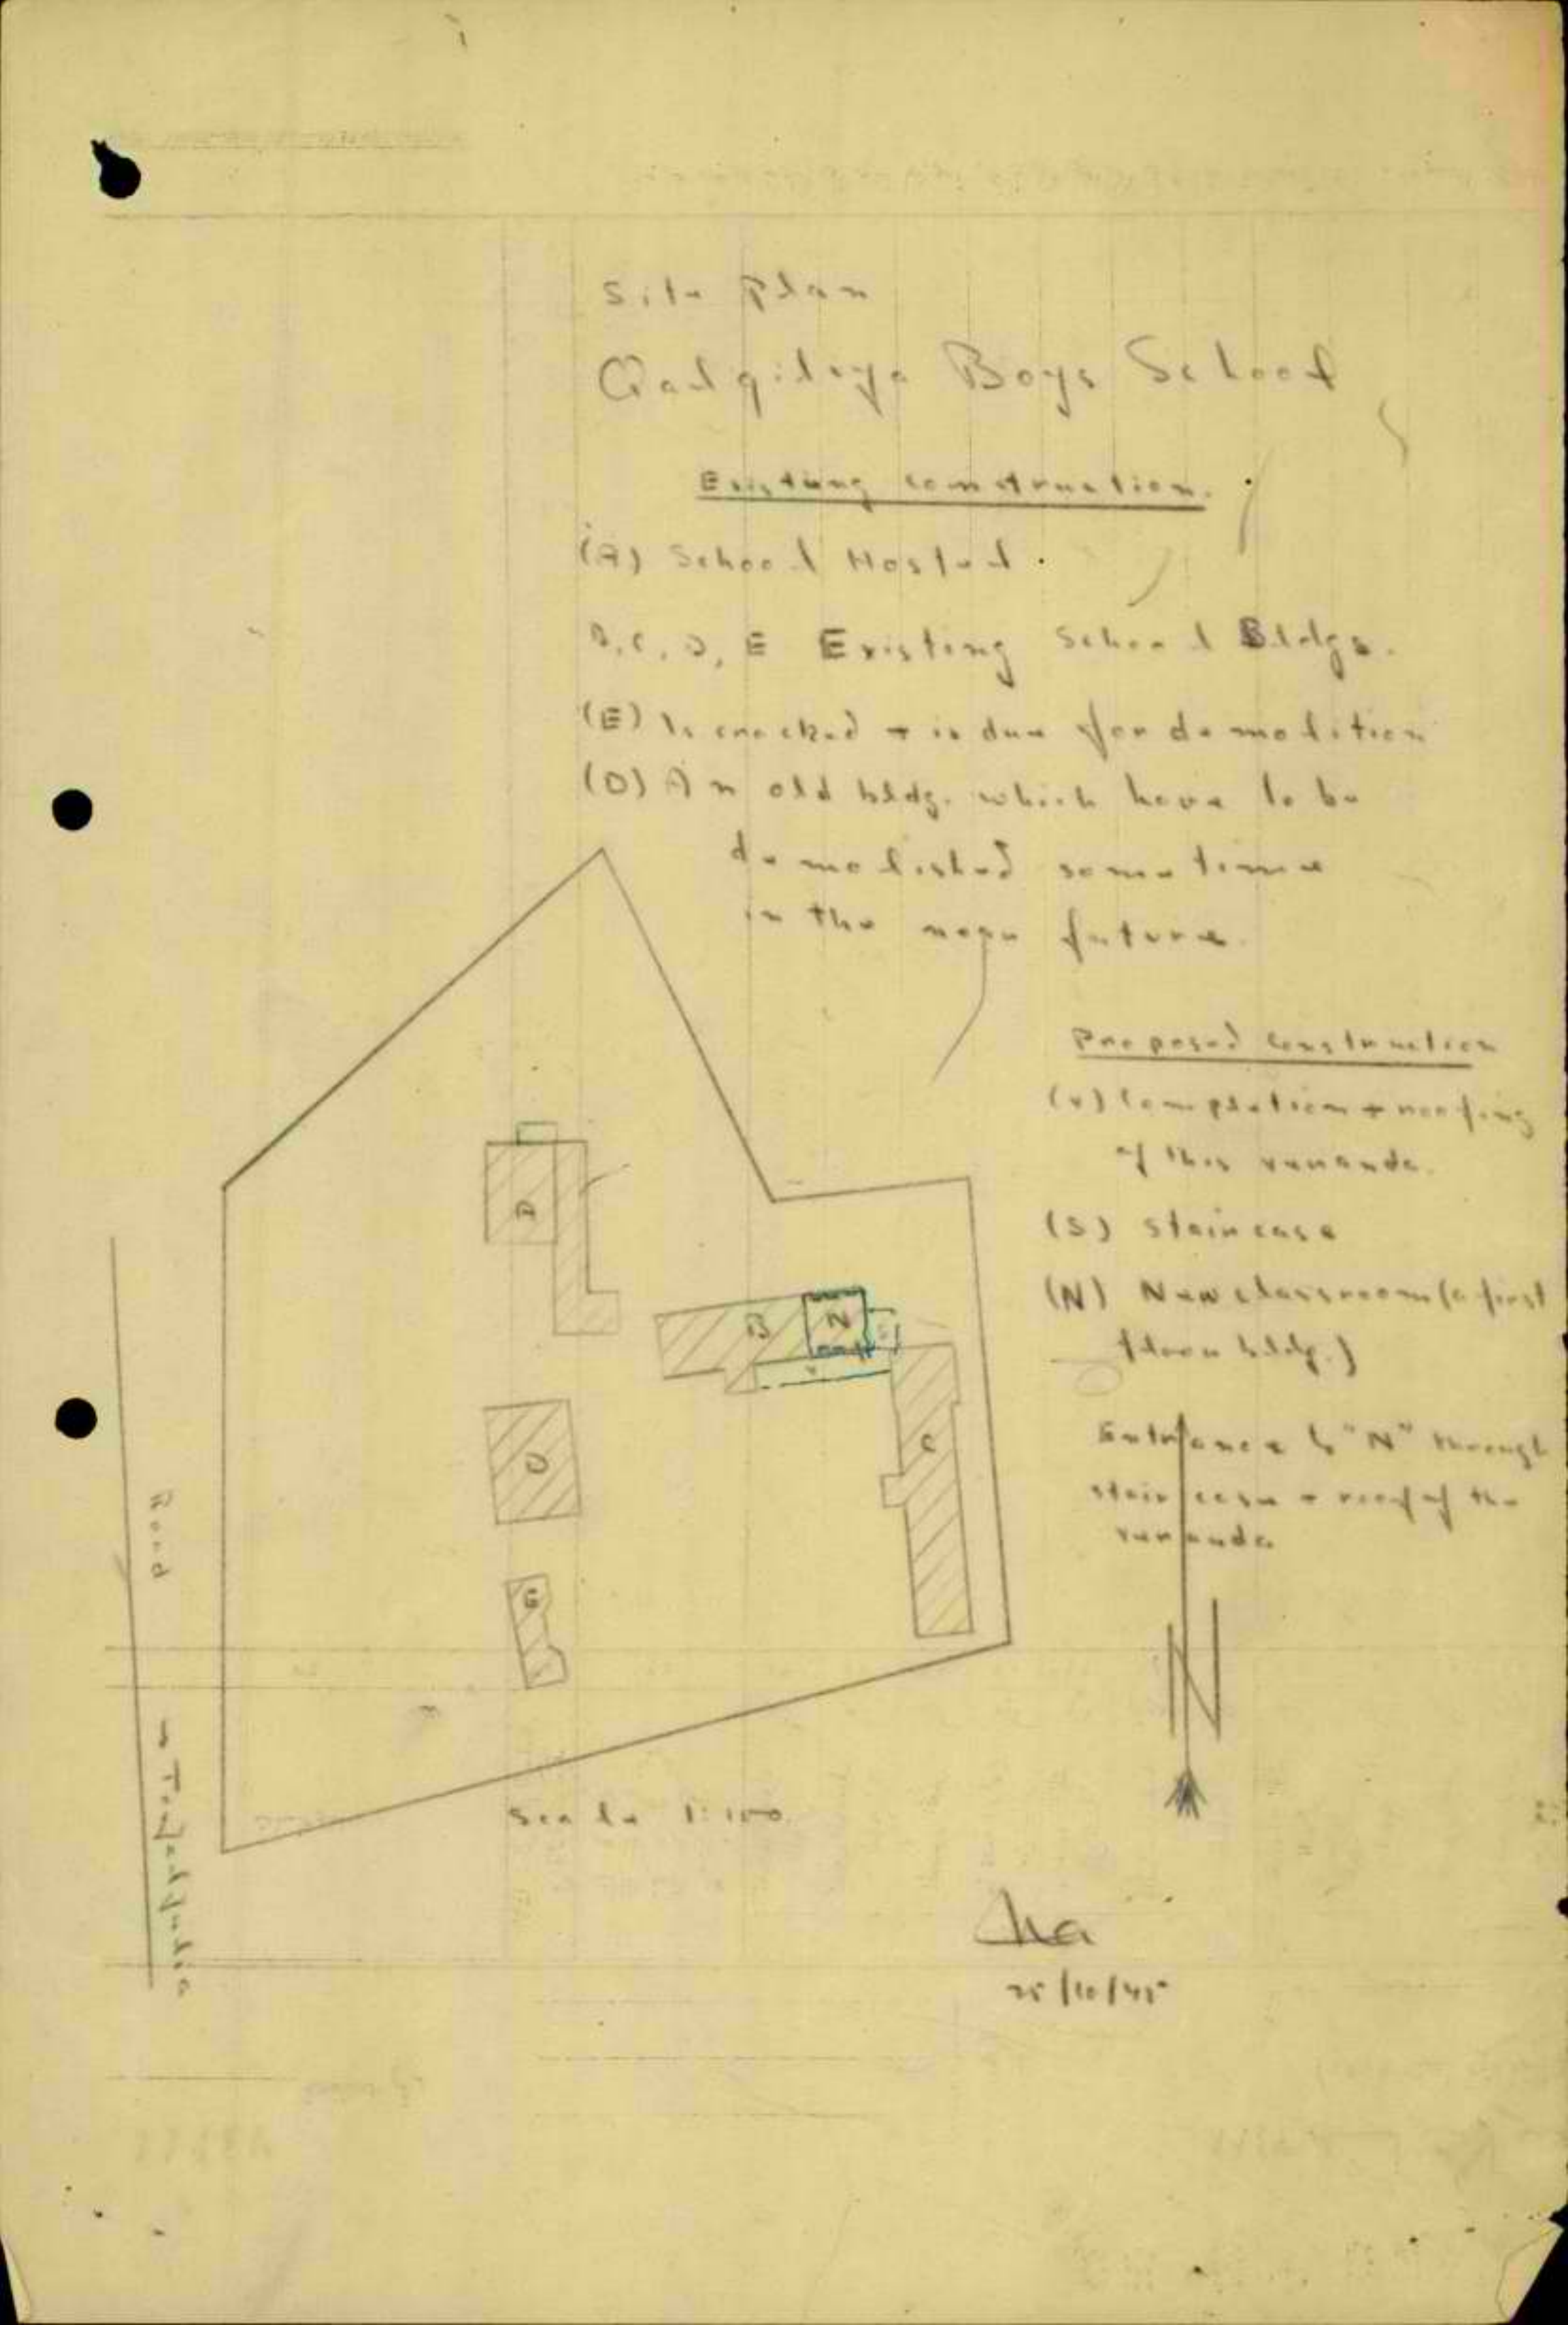 Site Plan
Qalqileya Boys School
Existing construction.
(A) School Hostel.
B, C, D, E Existing School Bldgs.
(E) Is cracked + is due for demolition
(D) An old bldg. which have to be
demolished some time
in the near future.
Proposed Construction
(v) Completion + roofing
of this veranda.
(S) Staircase
(N) New classroom (a first
floor bldg.)
Entrance to "N" through
staircase + roof of the
veranda
N
B
N
v
C
D
E
Road
Scale 1:100
25/10/45